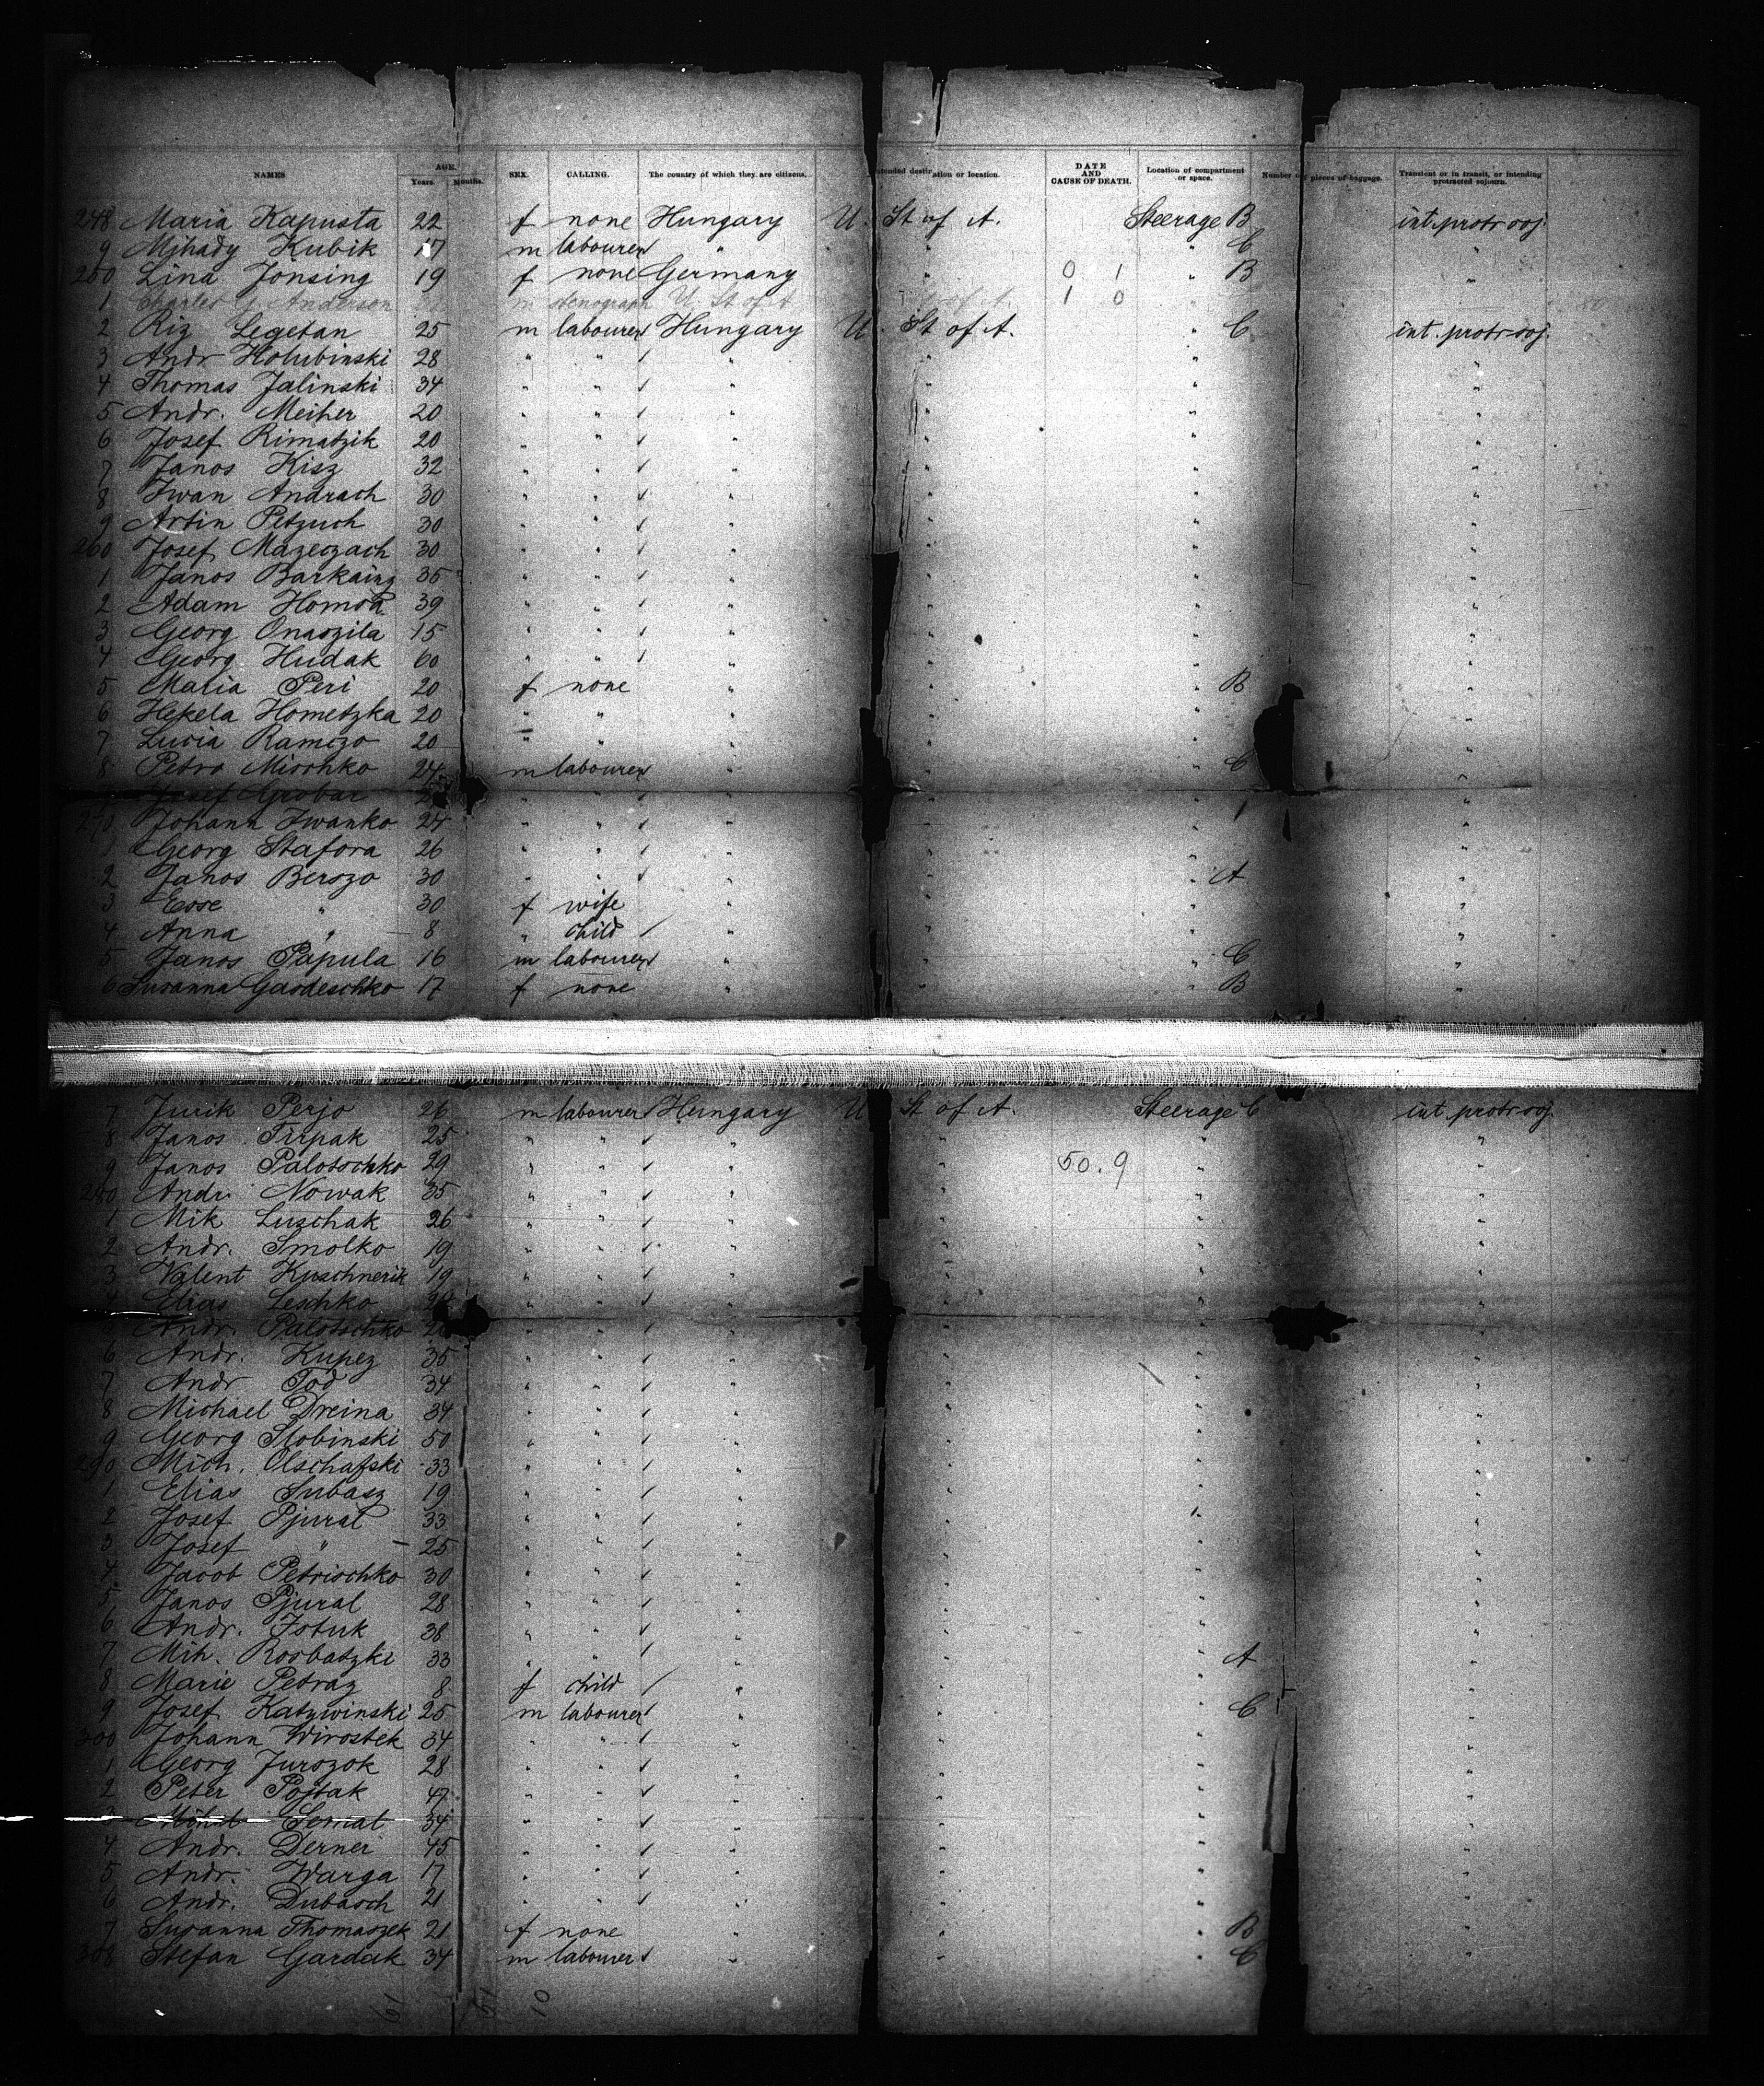 NAMES AGE. Years. Months. SEX. CALLING. The country of which they are citizens. Intended destination or location. DATE AND CAUSE OF DEATH. Location of compartment or space. Number of pieces of baggage. Transient or in transit, or intending protracted sojourn.
248 Maria Kapusta 22 f none Hungary U. St of A. Steerage B int. protr soj.
9 Mihady Kubik 17 m labourer " " " C "
250 Lina Jonsing 19 f none Germany " 0 1 " B "
1 Charles Anderson m stenograph U. St of A 1 0
2 Riz Legetan 25 m labourer Hungary U. St of A. " C int. protr soj.
3 Andr Holubinski 28 " " " " " "
4 Thomas Jalinski 34 " " " " " "
5 Andr. Meiher 20 " " " " " "
6 Josef Rimatzik 20 " " " " " "
7 Janos Kisz 32 " " " " " "
8 Iwan Andrach 30 " " " " " "
9 Artin Petzuch 30 " " " " " "
260 Josef Mazeczach 30 " " " " " "
1 Janos Barkainz 35 " " " " " "
2 Adam Homoa 39 " " " " " "
3 Georg Onaszila 15 " " " " " "
4 Georg Hudak 60 " " " " " "
5 Maria Peri 20 f none " " " B "
6 Hekela Hometzka 20 " " " " " "
7 Lucia Ramezo 20 " " " " " "
8 Petro Mischko 24 m labourer " " " C "
Josef Grobar " " " " " "
270 Johann Iwanko 24 " " " " " "
1 Georg Stafora 26 " " " " " "
2 Janos Berszo 30 " " " " " A "
3 " 30 f wife " " " "
4 Anna " 8 " child " " " "
5 Janos Papula 16 m labourer " " " C "
6 Susanna Gasdeschko 17 f none " " " B "
7 Jurik Perjo 26 m labourer Hungary U St of A. Steerage C int. protr soj.
8 Janos Tirpak 25 " " " " " "
9 Janos Palotschko 29 " " " " 50.9 " "
280 Andr. Nowak 35 " " " " " "
1 Mik Luschak 26 " " " " " "
2 Andr. Smolko 19 " " " " " "
3 Valent Kuschnerik 19 " " " " " "
4 Elias Leschko " " " " " "
Andr. Palotschko " " " " " "
6 Andr. Kupez 35 " " " " " "
7 Andr Tod 34 " " " " " "
8 Michael Dreina 34 " " " " " "
9 Georg Slobinski 50 " " " " " "
290 Mich. Olschafski 33 " " " " " "
1 Elias Subasz 19 " " " " " "
2 Josef Pjural 33 " " " " " "
3 Josef " 25 " " " " " "
4 Jacob Petrischko 30 " " " " " "
5 Janos Pjural 28 " " " " " "
6 Andr. Istuk 38 " " " " " "
7 Mih. Rosbatzki 33 " " " " " A "
8 Marie Petraz 8 f child " " " "
9 Josef Katzwinski 25 m labourer " " " C "
300 Johann Wirostek 34 " " " " " "
1 Georg Juroszok 28 " " " " " "
2 Peter Pojtak 47 " " " " " "
Semat 34 " " " " " "
4 Andr. Derner 45 " " " " " "
5 Andr. Warga 17 " " " " " "
6 Andr. Dubasch 21 " " " " " "
7 Susanna Thomaszek 21 f none " " " B "
308 Stefan Gardak 34 m labourer " " " C "
61 51 10